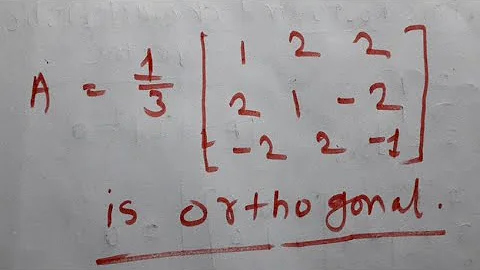 A = 1/3 [ 1 2 2
2 1 -2
-2 2 -1 ]
is orthogonal.